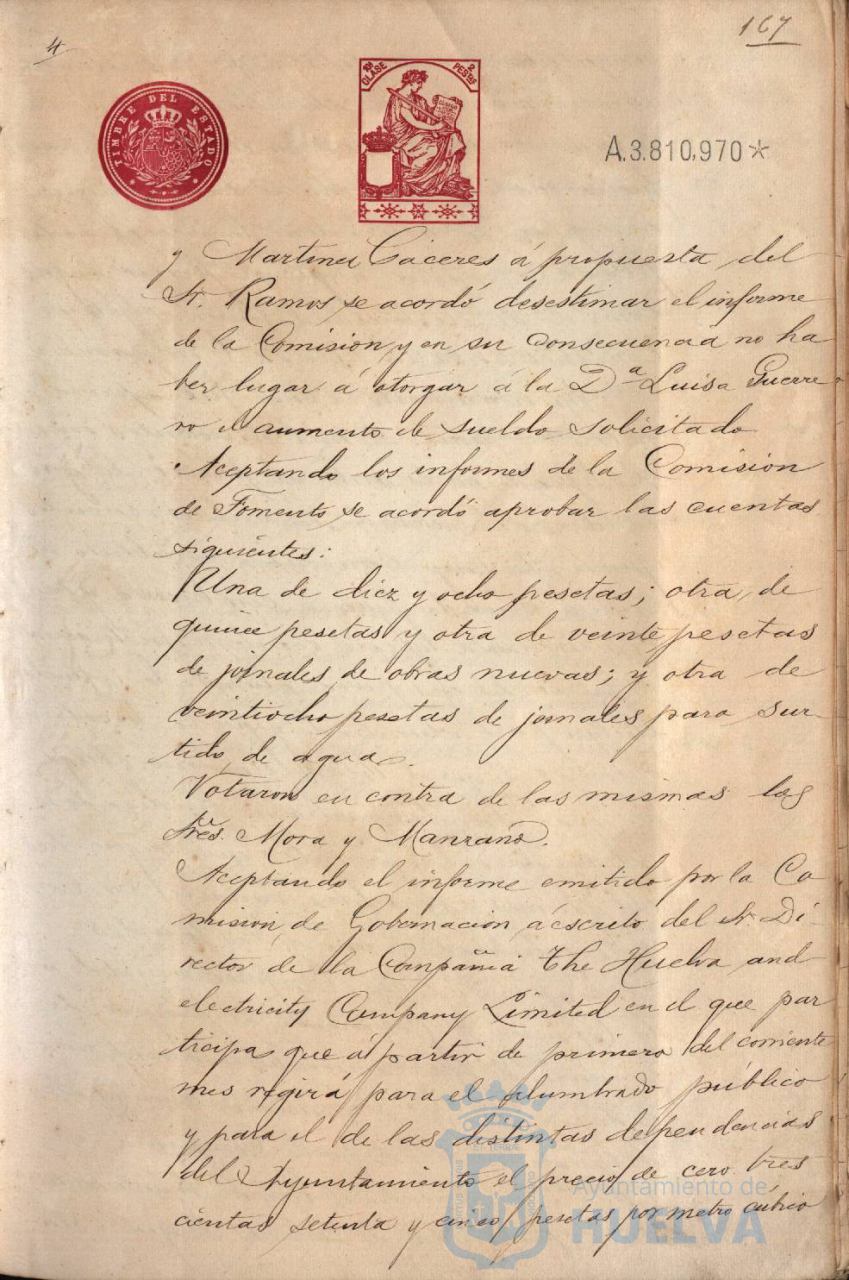 4
167
TIMBRE DEL ESTADO
10ª CLASE 2 PESTAS
A.3.810,970*
y Martinez Cáceres á propuesta del
Sr. Ramos se acordó desestimar el informe
de la Comision y en su consecuencia no ha
ber lugar á otorgar á la Dª Luisa Guerre
ro el aumento de sueldo solicitado
Aceptando los informes de la Comision
de Fomento se acordó aprobar las cuentas
siguientes:
Una de diez y ocho pesetas; otra de
quince pesetas y otra de veinte pesetas
de jornales de obras nuevas; y otra de
veintiocho pesetas de jornales para sur-
tido de agua.
Votaron en contra de las mismas los
Sres. Mora y Manzano.
Aceptando el informe emitido por la Co
mision de Gobernacion á escrito del Sr. Di-
rector de la Compañia The Huelva and
electricity Company Limited en el que par
ticipa que á partir de primero del corriente
mes regirá para el alumbrado público
y para el de las distintas dependencias
del Ayuntamiento el precio de cero tres
cientas setenta y cinco pesetas por metro cúbico
Ayuntamiento de
HUELVA